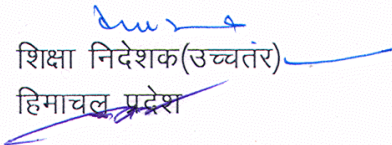 शिक्षा निदेशक(उच्चतंर)
हिमाचल प्रदेश